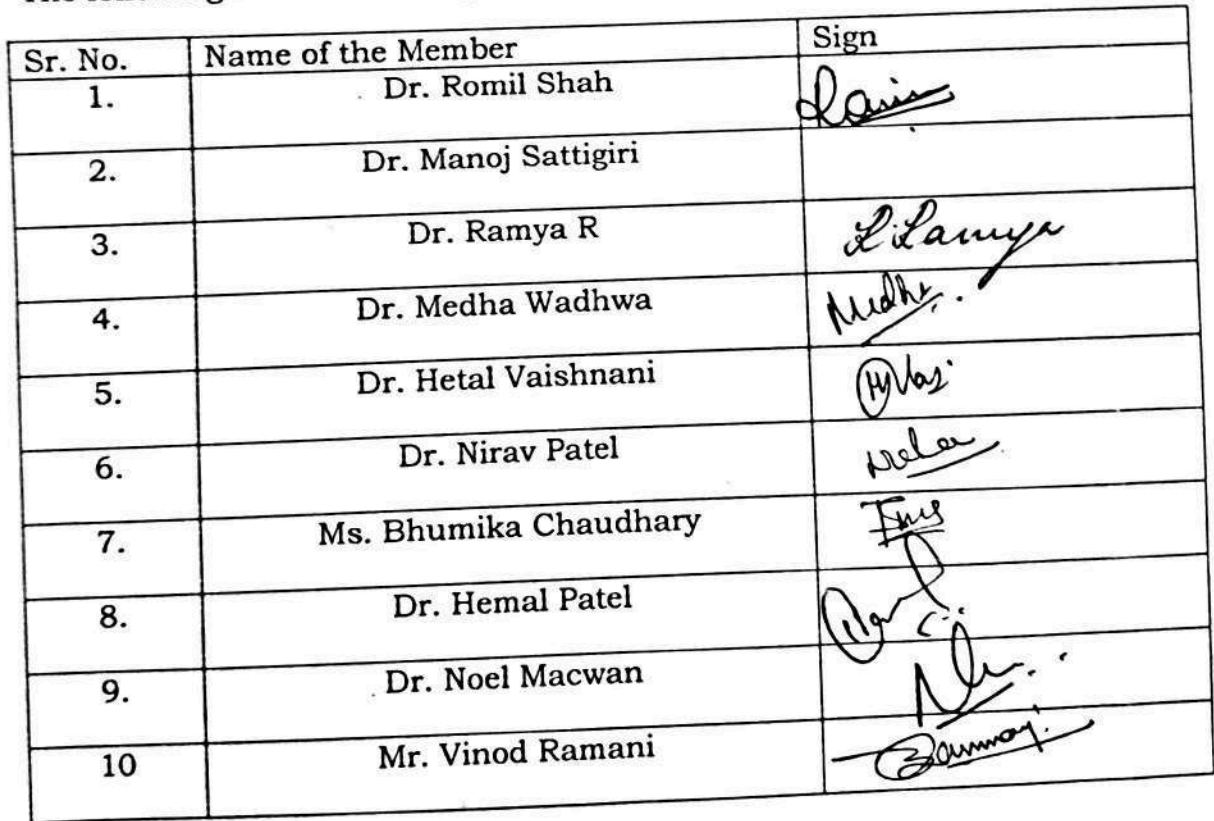 Sr. No. Name of the Member Sign
1. Dr. Romil Shah
2. Dr. Manoj Sattigiri
3. Dr. Ramya R R.Ramya
4. Dr. Medha Wadhwa Medha
5. Dr. Hetal Vaishnani
6. Dr. Nirav Patel
7. Ms. Bhumika Chaudhary
8. Dr. Hemal Patel
9. Dr. Noel Macwan
10 Mr. Vinod Ramani